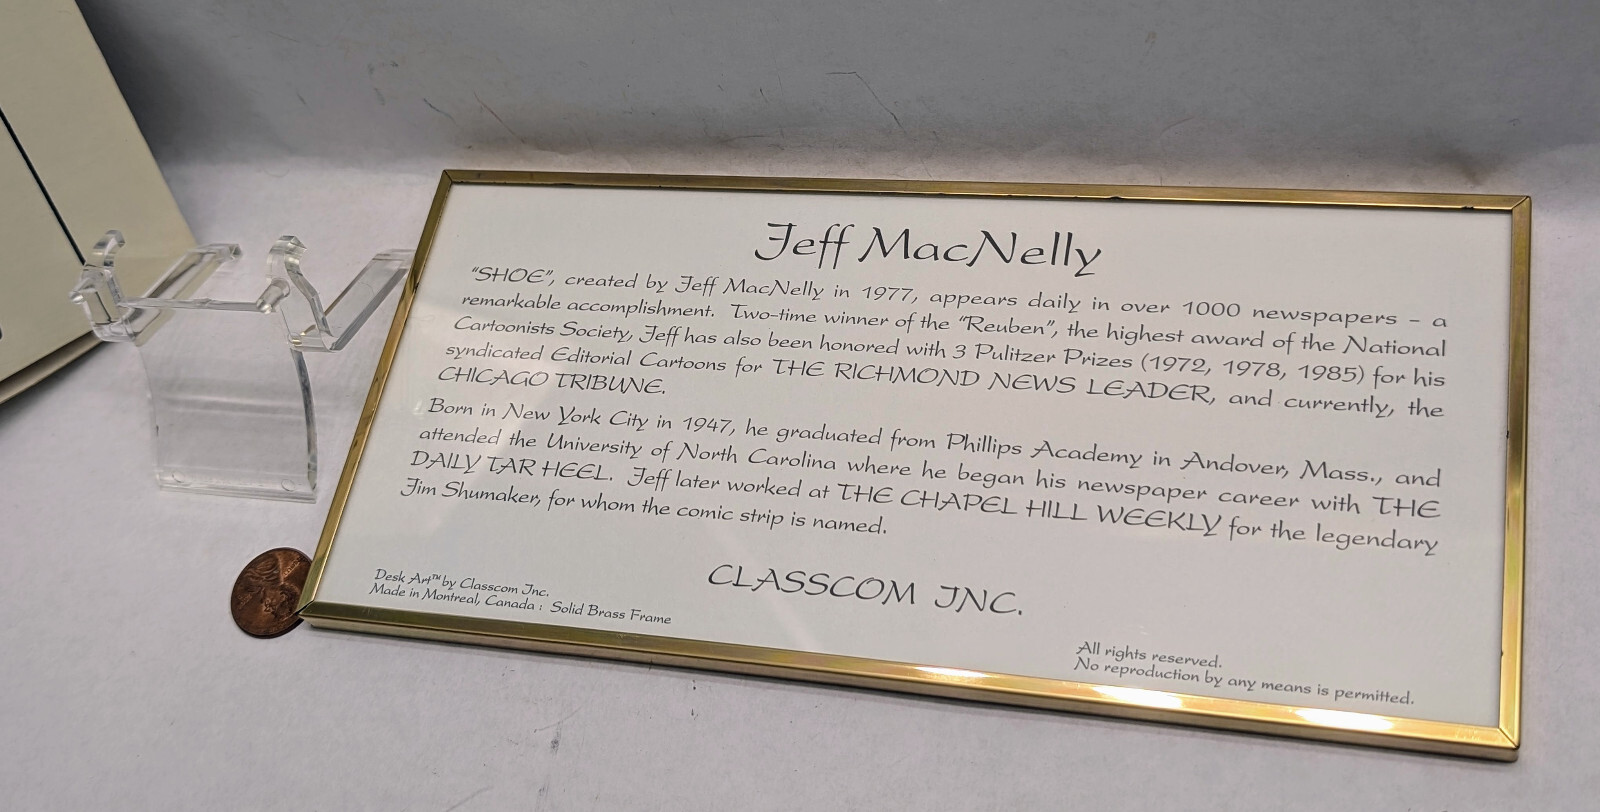 Jeff MacNelly
"SHOE", created by Jeff MacNelly in 1977, appears daily in over 1000 newspapers - a
remarkable accomplishment. Two-time winner of the "Reuben", the highest award of the National
Cartoonists Society, Jeff has also been honored with 3 Pulitzer Prizes (1972, 1978, 1985) for his
syndicated Editorial Cartoons for THE RICHMOND NEWS LEADER, and currently, the
CHICAGO TRIBUNE.
Born in New York City in 1947, he graduated from Phillips Academy in Andover, Mass., and
attended the University of North Carolina where he began his newspaper career with THE
DAILY TAR HEEL. Jeff later worked at THE CHAPEL HILL WEEKLY for the legendary
Jim Shumaker, for whom the comic strip is named.
CLASSCOM INC.
Desk Art™ by Classcom Inc.
Made in Montreal, Canada : Solid Brass Frame
All rights reserved.
No reproduction by any means is permitted.